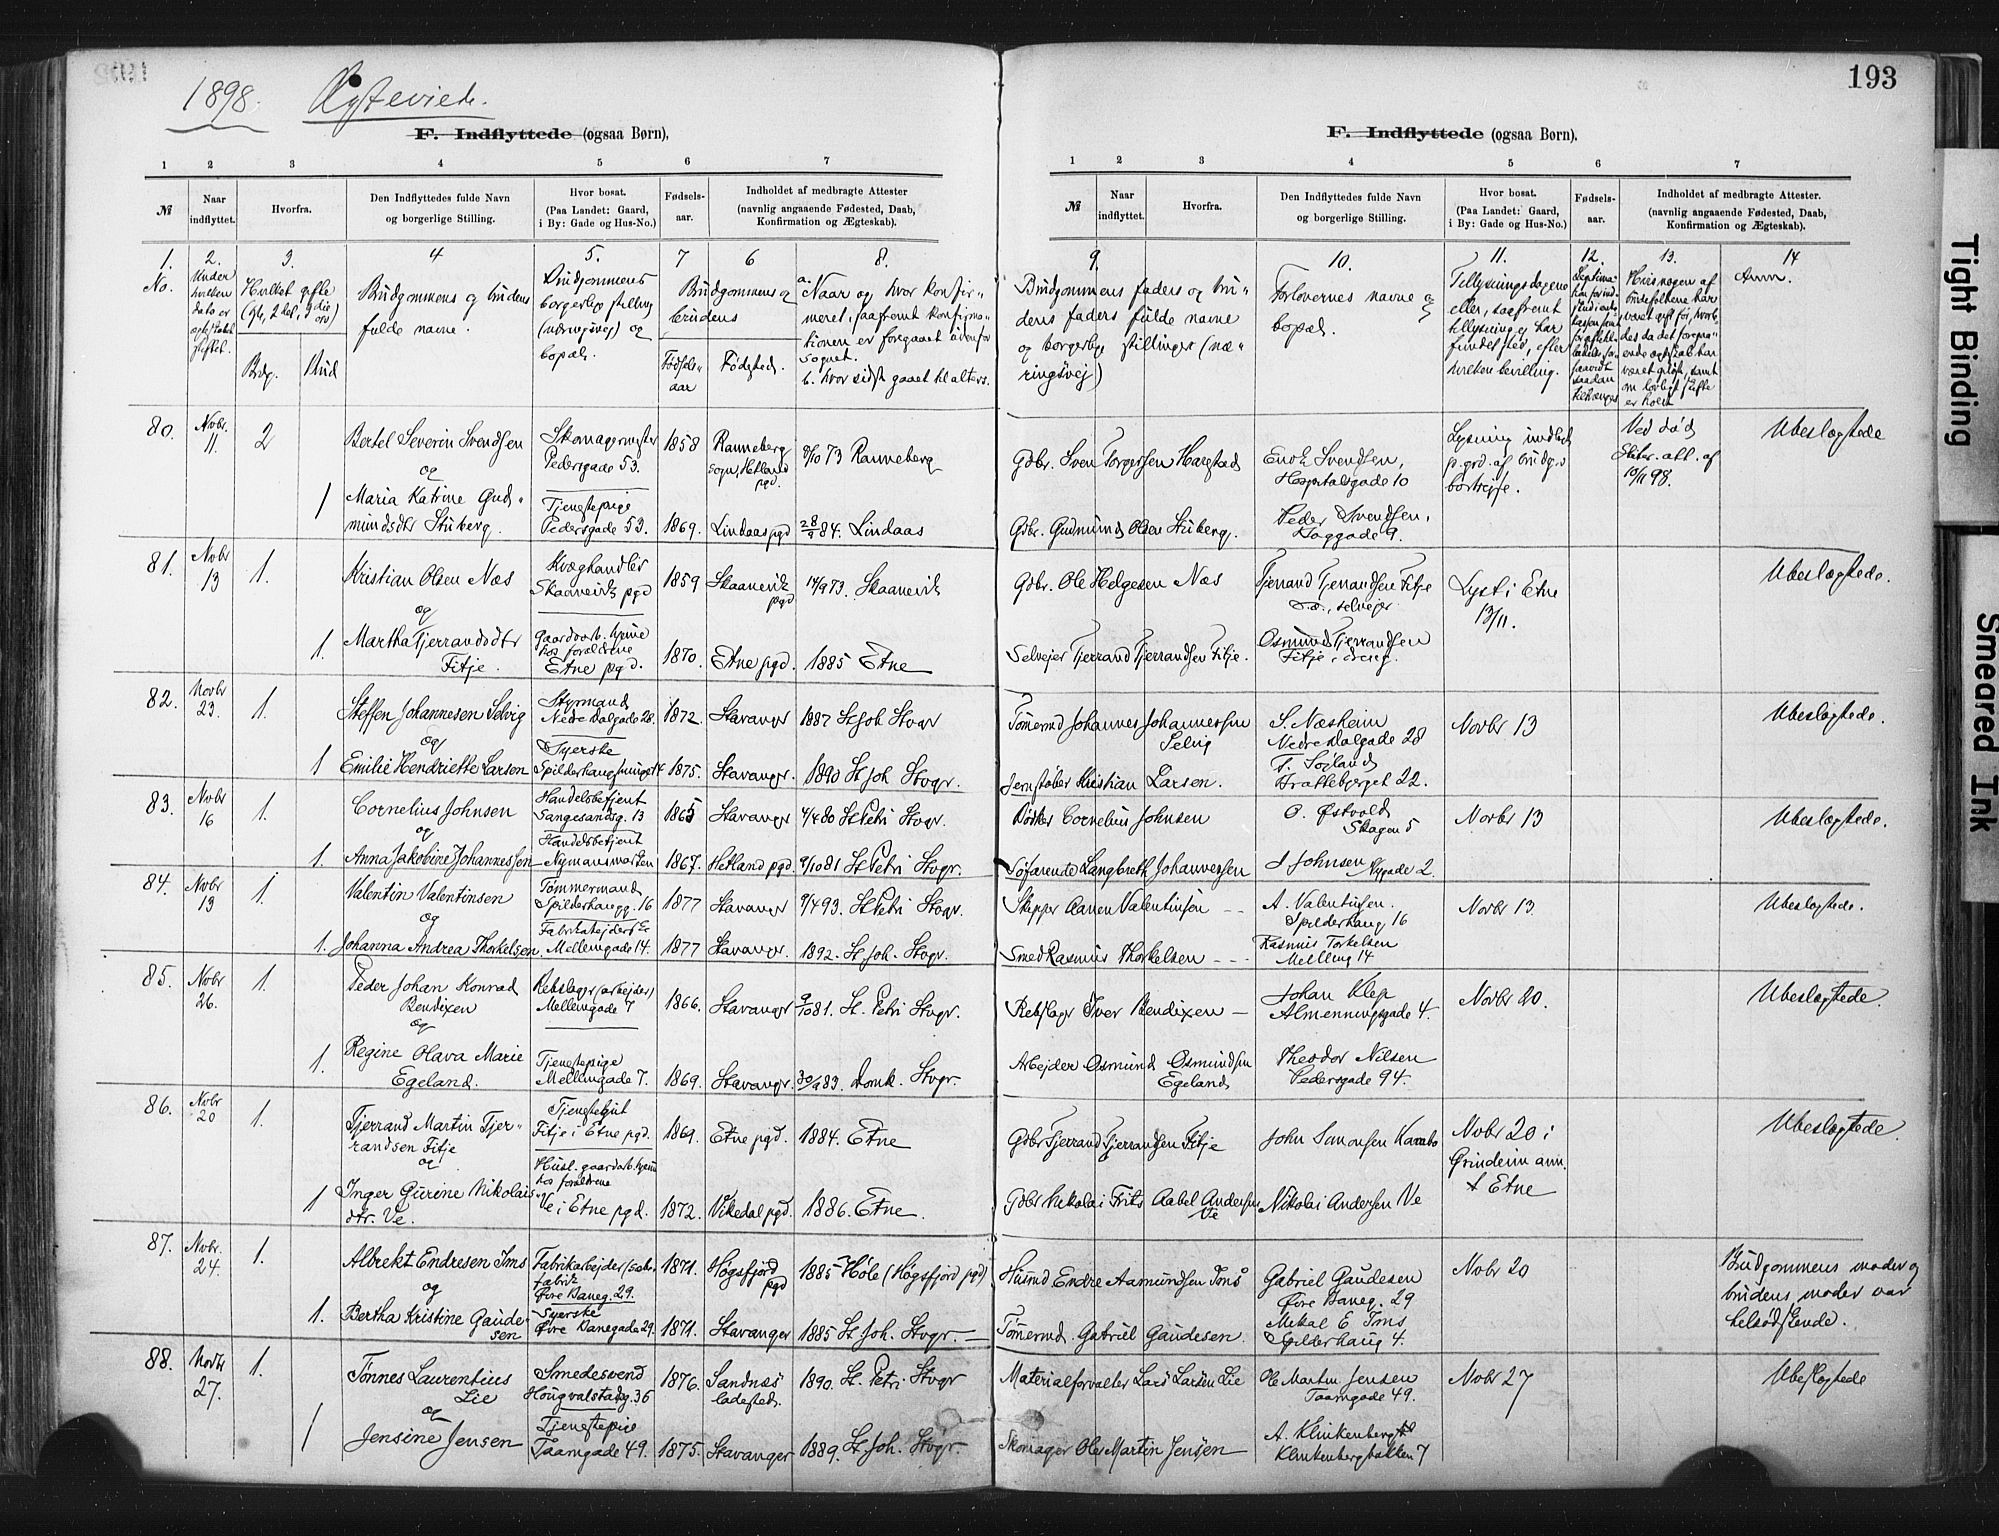 193
1898. Ægteviede.
F. Indflyttede (ogsaa Børn),
1 2 3 4 5 6 7
№
Naar indflyttet.
Hvorfra.
Den Indflyttedes fulde Navn og borgerlige Stilling.
Hvor bosat. (Paa Landet: Gaard, i By: Gade og Hus-No.)
Fødsels-aar.
Indholdet af medbragte Attester (navnlig angaaende Fødested, Daab, Konfirmation og Ægteskab).
F. Indflyttede (ogsaa Børn).
1 2 3 4 5 6 7
№
Naar indflyttet.
Hvorfra.
Den Indflyttedes fulde Navn og borgerlige Stilling.
Hvor bosat. (Paa Landet: Gaard, i By: Gade og Hus-No.)
Fødsels-aar.
Indholdet af medbragte Attester. (navnlig angaaende Fødested, Daab, Konfirmation og Ægteskab).
1. 2. 3. 4 5. 7 6 8.
No.
Brudgommens og brudens fulde navne.
Brudgommens borgerlig stilling (næringsvej) og bopæl.
Brudgommens og brudens
Fødselsaar
Fødested.
a. Naar og hvor konfirmeret, saafremt konfirmationen er foregaaet udenfor sognet.
b. hvor sidst gaaet til alters.
Brdg. Brud
9. 10. 11. 12. 13. 14
Brudgommens faders og brudens faders fulde navne og borgerlige stillinger (næringsvej)
Forlovernes navne og bopæl.
Tillysningsdagene eller, saafremt tillysning ej har fundet sted, efter hvilken bevilling.
Anm.
80. Novbr. 11. 2 Bertel Severin Svendsen Skomagermester Pedersgade 53. 1858 Ranneberg sogn, Hetland pgd. 5/10 73 Ranneberg
og
1 Maria Katrine Gudmundsdtr Stuberg. Tjenestepige Pedersgade 53. 1869. Lindaas pgd 28/9 84. Lindaas
Gdbr. Sven Torgersen Harestad Enok Svendsen, Hospitalsgade 10 Ved død Skifteatt. af 10/11 98. Ubeslægtede
Gdbr. Gudmund Olsen Stuberg. Peder Svendsen,
81. Novbr 13 1. Kristian Olsen Næs Kvæghandler Skaanevik pgd 1859 Skaanevik pgd 14/9 73. Skaanevik
og
1. Martha Tjerrandsdtr Fitje. Gaardarb. hjemme hos forældrene Etne pgd. 1870. Etne pgd. 1885 Etne
Gdbr. Ole Helgesen Næs Tjerrand Tjerrandsen Fitje s.s., selvejer Lyst i Etne 13/11. Ubeslægtede.
Selvejer Tjerrand Tjerrandsen Fitje. Osmund Tjerrandsen Fitje,
82. Novbr 23. 1. Steffen Johannesen Selvig Styrmand Nedre Dalgade 28. 1872. Stavanger 1887 St Joh Stvgr
og
1 Emilie Hendriette Larsen Syerske 1875. Stavanger. 1890 St Joh. Stvgr.
Tømmermd Johannes Johannessen Selvig S. Næsheim Nedre Dalgade 28 Novbr 13 Ubeslægtede.
Jernstøber Kristian Larsen. T. Søiland 22.
83. Novbr 16 1. Cornelius Johnsen Handelsbetjent 13 1865 Stavanger 4/4 80 St Petri Stvgr.
og
1. Anna Jakobine Johannessen Handelsbetjent 1867. Hetland pgd. 9/10 81 St Petri Stvgr.
Bødker Cornelius Johnsen O. Østvold Skagen 5 Novbr 13 Ubeslægtede.
Søfarende Langbreth Johannessen J Johnsen Nygade 2.
84. Novbr 13 1. Valentin Valentinsen Tømmermand Spilderhaugg. 16 1877 Stavanger 9/4 93. St Petri Stvgr.
og
1. Johanna Andrea Thorkelsen Fabrikarbejderske Mellemgade 14. 1877 Stavanger. 1892. St Joh. Stvgr.
Skipper Aanen Valentinsen A. Valentinsen. Spilderhaug 16 Novbr 13. Ubeslægtede.
Smed Rasmus Thorkelsen Rasmus Torkelsen 14
85. Novbr 26. 1. Peder Johan Konrad Bendixen Rebslager (arbejder) Mellemgade 7 1866. Stavanger 9/10 81. St. Petri Stvgr.
og
1. Regine Olava Marie Egeland. Tjenestepige Mellemgade 7. 1869. Stavanger. 30/9 83. Domk. Stvgr.
Rebslager Iver Bendixen Johan Klep Almenningsgade 4. Novbr 20. Ubeslægtede.
Arbejder Osmund Osmundsen Egeland Theodor Nilsen Pedersgade 94.
86. Novbr 20 1. Tjerrand Martin Tjerrandsen Fitje Tjenestegut Fitje i Etne pgd. 1869. Etne pgd. 1884. Etne
og
1 Inger Gurine Nikolaisdtr. Ve. Husl. gaardarb. hjemme hos forældrene Ve i Etne pgd. 1872. Vikedal pgd. 1886. Etne.
Gdbr Tjerrand Tjerrandsen Fitje John Simonsen Novbr 20 i Grindeim ann. t. Etne Ubeslægtede.
Gdbr Nikolai Frits Aabel Andersen Ve Nikolai Andersen Ve
87. Novbr. 24. 1. Albrekt Endresen Ims Fabrikarbejder Øvre Baneg. 29. 1871. Høgsfjord pgd 1885 Høle (Høgsfjord pgd)
og
1. Bertha Kristine Gaudesen Syerske Øvre Banegade 29. 1871. Stavanger 1885 St Joh. Stvgr.
Husmd Endre Aamundsen Ims Gabriel Gaudesen Øvre Baneg. 29 Novbr 20 Brudgommens moder og brudens moder var helsødskende.
Tømermd. Gabriel Gaudesen. Mikal E Ims Spilderhaug 4.
88. Novbr 27. 1. Tønnes Laurentius Lie Smedesvend Hougvalstadg. 36 1876. Sandnæs ladested. 1890. St. Petri Stvgr
og
1 Jensine Jensen Tjenestepige Taarngade 49. 1875. Stavanger 1889. St Joh. Stvgr.
Materialforvalter Lars Larsen Lie Ole Martin Jensen Taarngade 49. Novbr 27 Ubeslægtede
Skomager Ole Martin Jensen A. Klinkenberg Klinkenbergbakken 7
Tight Binding
Smeared Ink